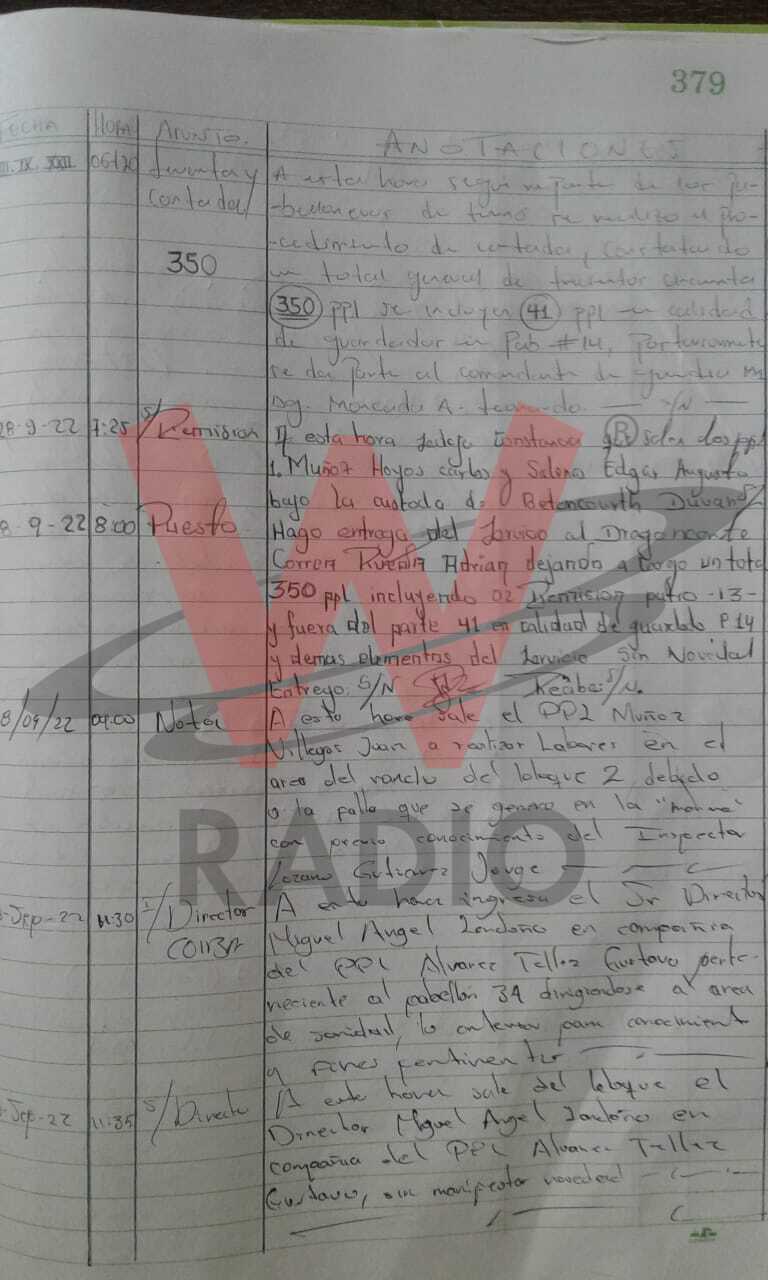 379
FECHA HORA ASUNTO. ANOTACIONES
III.IX.XXII 06:20 Inventa y A esta hora segun reporte de los pa-
Contada -belloneros de turno se realizo el pro-
-cedimiento de contada, constatando
350 un total general de trescientos cincuenta
350 ppl se incluyen 41 ppl en calidad
de guardados in Pab #14,
se da parte al comandante de guardia
Dg. Moncada A. S/N
28-9-22 7:25 S/Remision A esta hora dejo constancia q R salen dos ppl
1. Muñoz Hoyos Carlos y Edgar Augusto
bajo la custodia de Betencourth Duvan S/
8-9-22 8:00 Puesto Hago entrega del Servicio al Dragoneante
Correa Rueda Adrian dejando a cargo un total
350 ppl incluyendo 02 Remision patio -13-
y fuera del parte 41 en calidad de guardado P 14
y demas elementos del Servicio Sin Novedad
Entrego: S/N Recibe: S/N.
8/09/22 09:00 Nota A esta hora sale el PPL Muñoz
Villegas Juan a realizar Labores en el
area del rancho del bloque 2 debido
a la falla que se genero en la
con previo conocimiento del Inspector
Lozano Gutierrez Jorge
-Sep-22 11:30 I/Director A esta hora ingresa el Sr Director
COIBA Miguel Angel Londoño en compañia
del PPL Alvarez Tellez Gustavo perte-
neciente al pabellon 34 dirigiendose al area
de sanidad, lo anterior para conocimiento
y fines pertinentes
-Sep-22 11:35 S/Directo A esta hora sale del bloque el
Director Miguel Angel Londoño en
compañia del PPL Alvarez Tellez
Gustavo, sin manifestar novedad
W
RADIO